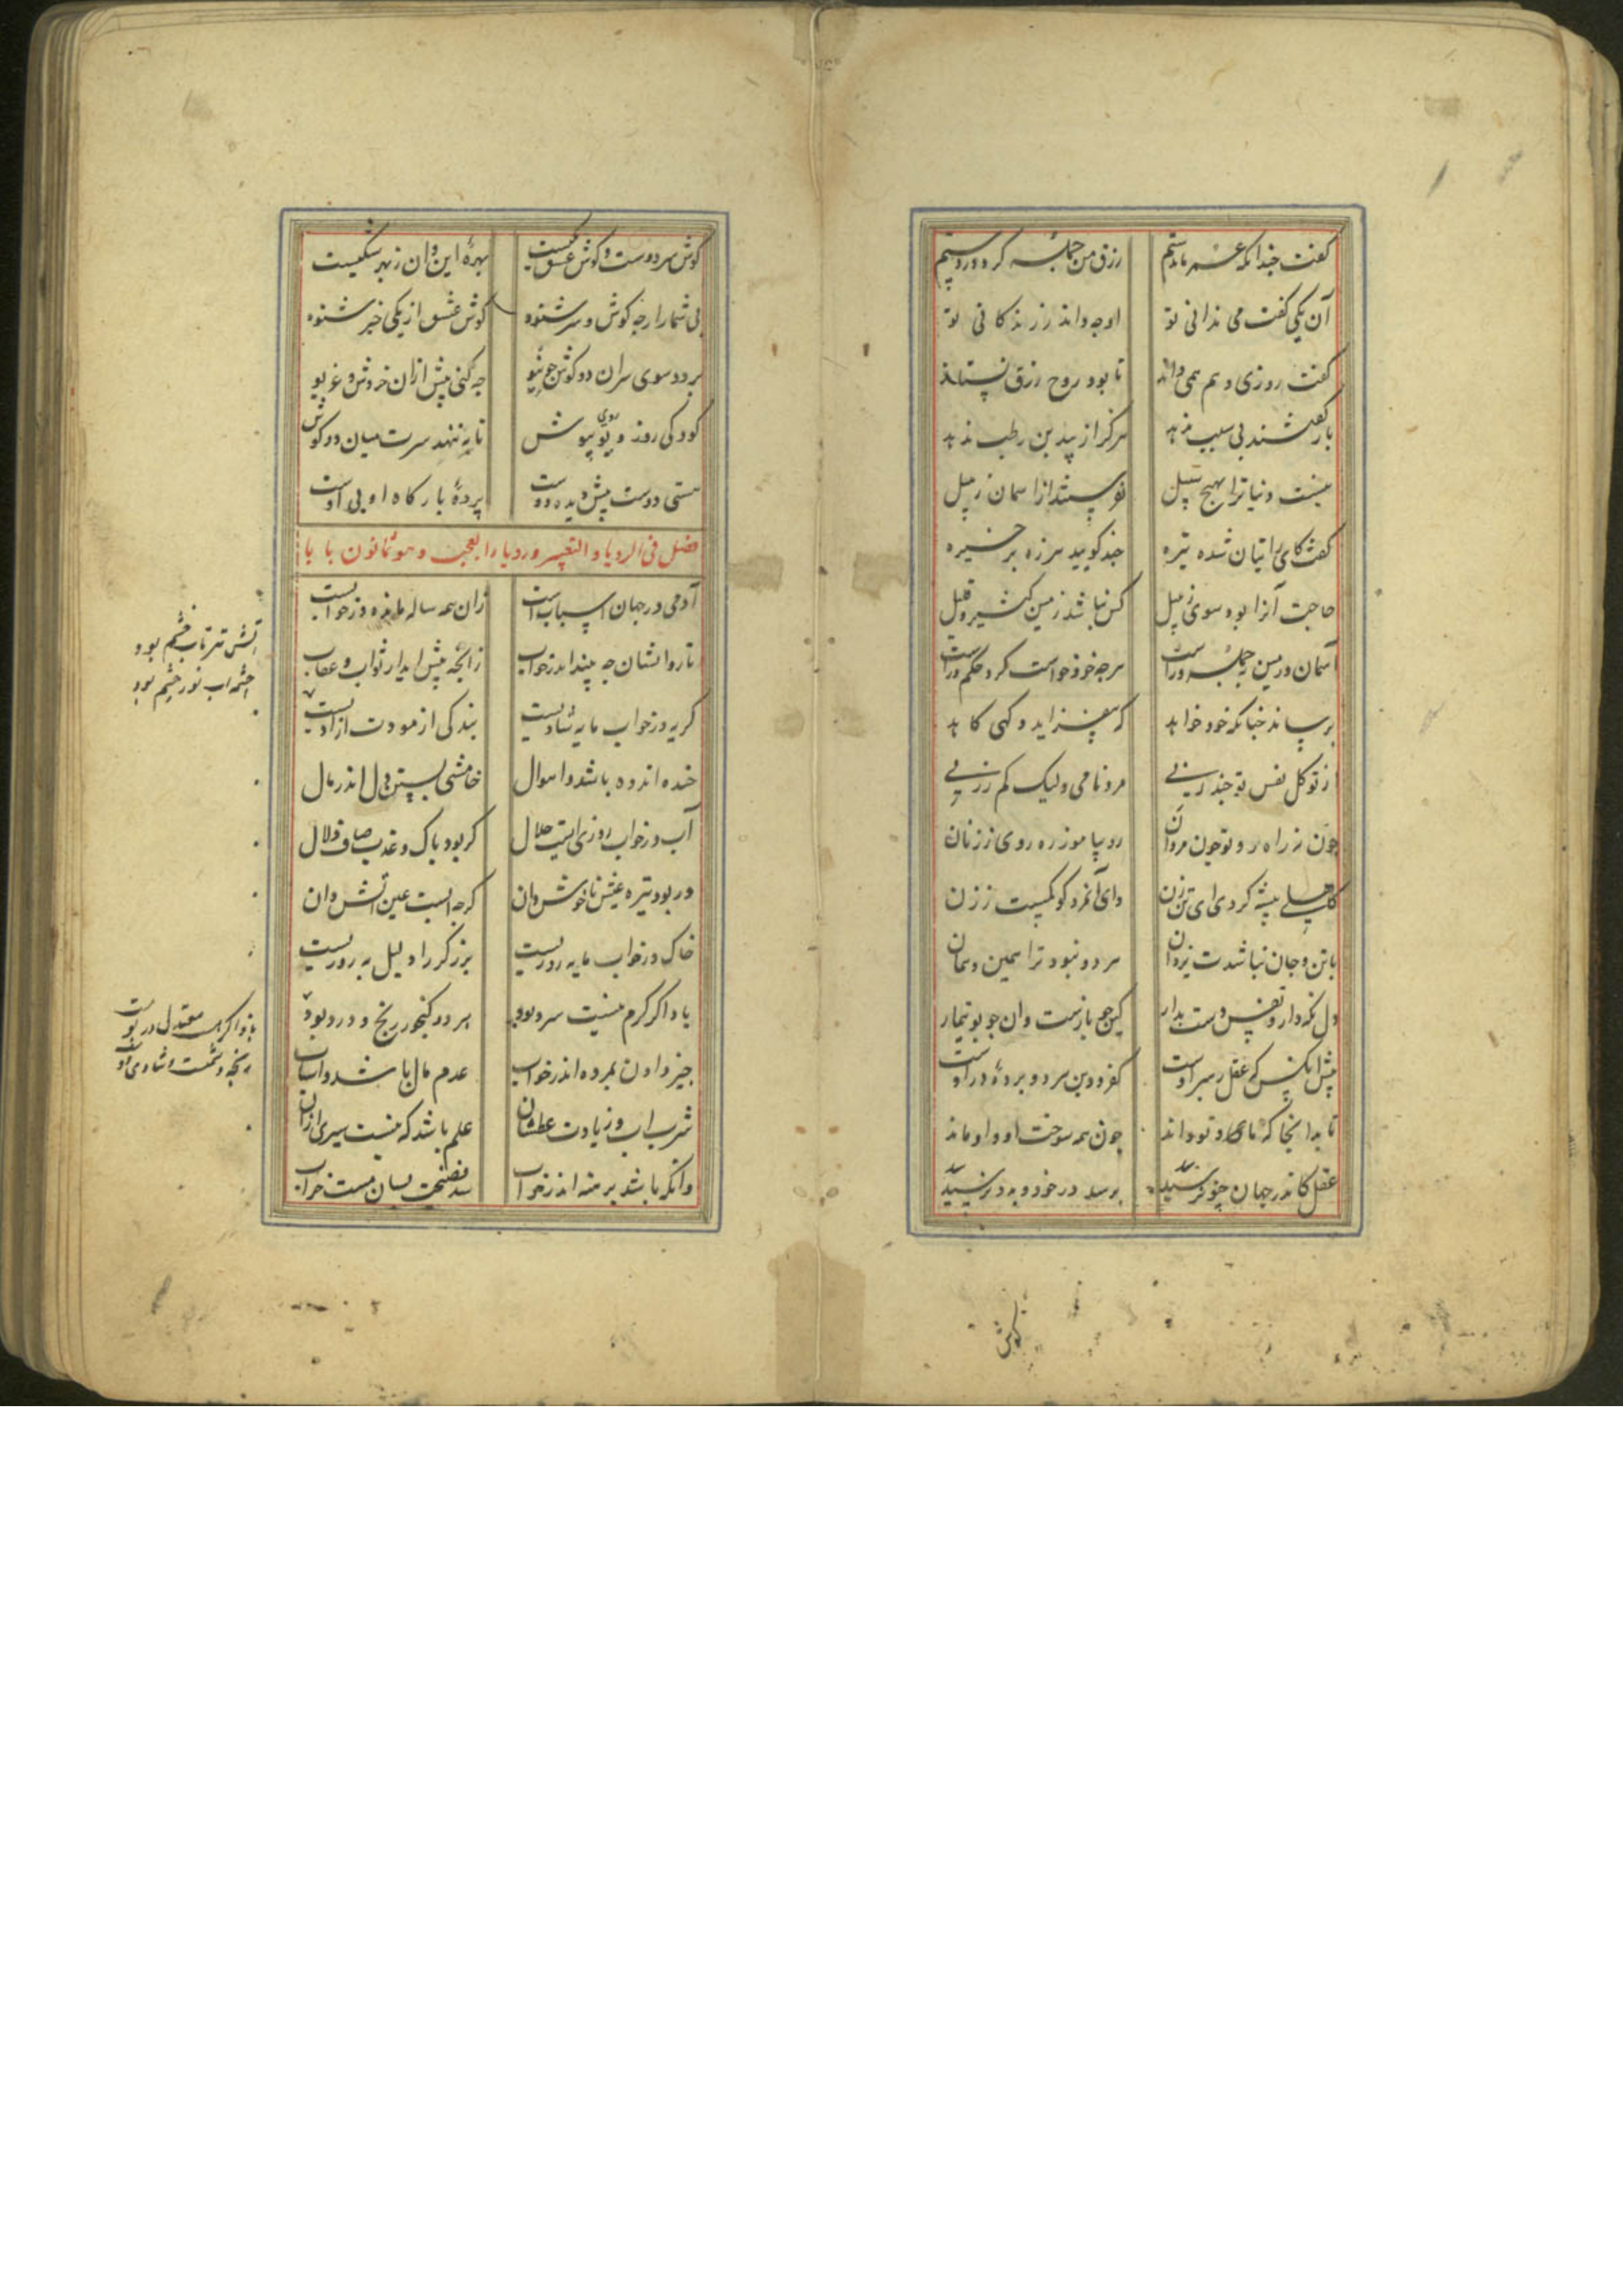 گفت چندانکه عمر ماندستم رزق من جمله کرد در دستم
آن یکی گفت می ندانی تو او چه داند ز زندکانی تو
گفت روزی دهم همی داند تا بود روح رزق نستاند
باز گفتند بی سبب ندهد هرگز از بید بن رطب ندهد
نیست دنیا ترا بهیچ سبیل نفرستدت از اسمان زنبیل
گفت کای رایتان شده تیره چند کویید هرزه بر خیره
حاجت آنرا بود سوی زنبیل کش نباشد زمین کثیر و قلیل
آسمان و زمین بجمله وراست هرچه خود خواست کرد حکم وراست
برساند چنانکه خود خواهد که بیفزاید و کهی کاهد
از توکل نفس تو چند زنی مرد نامی ولیک کم ز زنی
چون نه راه رو تو چون مردان رو بیاموز ره روی ز زنان
کاهلی پیشه کردی ای تن زن وای آنمرد کو کمست ز زن
با تن و جان نباشدت یزدان هر دو نبود ترا همین و همان
دل نکه دار و نفس دست بدار کین چو بازست و ان چو بوتیمار
پیش انکس که عقل رهبر اوست کفر و دین هر دو پردهٔ در اوست
تا بدانجا که ما و تو داند چون همه سوخت او و او ماند
عقل کاندر جهان چنو نرسید برسد در خود و بدو نرسید
کوش
کوش سر دوست و کوش عشق یکیست بهرهٔ این و ان ز بهر شکیست
بی شمار ارچه کوش سر شنود کوش عشق از یکی خبر شنود
بر دو سوی سر ان دو کوش چو تیو چه کنی پیش ازان خروش و غریو
کودکی رو ز دیو روی بپوش تا بننهد سرت میان دو کوش
هستی دوست پیش دیده دوست پردهٔ بارکاه او بی اوست
فصل فی الرویا و التعبیر و رویاء العجب و هو ثمانون بابا
آدمی در جهان اسبابست زان همه ساله مانده در خوابست
تا روانشان چه بیند اندر خواب زانچه پیش اید از ثواب و عقاب
گریه در خواب مایه شادیست بندکی از مودت ازادیست
خنده اندوه باشد و اهوال خامشی بستن دل اندر مال
آب در خواب روزیست حلال کر بود پاک و عذب صاف و زلال
ور بود تیره عیش ناخوش دان کرچه ابست عین آتش دان
خاک در خواب مایه روزیست برزکر را دلیل به روزیست
باد اکر کرم نیست سرد بود هر دو کنجور رنج و درد بود
چیز دادن بمرده اندر خواب عدم مال باشد و اسباب
شرب اب و زیادت عطشان علم باشد که نیست سیری ازان
وانکه باشد برهنه اندر خواب بفضیحت بسان مست خراب
آتش تیز تاب خشم بود
چشمه اب نور چشم بود
باز اکر هست معتدل در پوست
رنجه دشمنست و شادی دوست